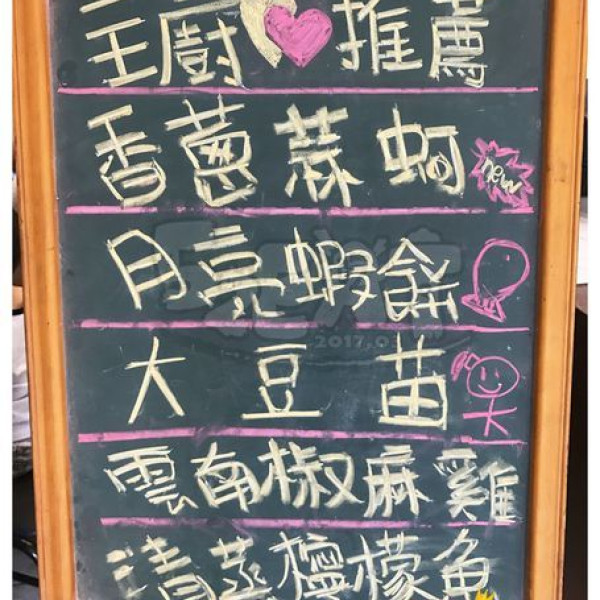 主廚推薦
香蔥蒜蚵
new
月亮蝦餅
大豆苗
雲南椒麻雞
清蒸檸檬魚
2017.0